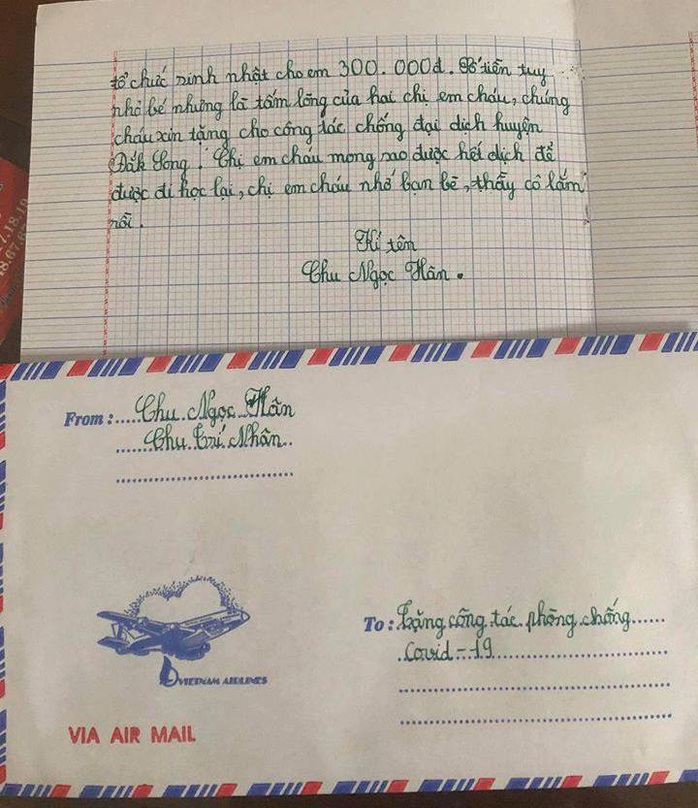 tổ chức sinh nhật cho em 300.000đ. Số tiền tuy
nhỏ bé nhưng là tấm lòng của hai chị em cháu, chúng
cháu xin tặng cho công tác chống đại dịch huyện
Đắk Song. Chị em cháu mong sao được hết dịch để
được đi học lại, chị em cháu nhớ bạn bè, thầy cô lắm
rồi.
Kí tên
Chu Ngọc Hân.
From: Chu Ngọc Hân
Chu Trí Nhân
VIETNAM AIRLINES
VIA AIR MAIL
To: Tặng công tác phòng chống
Covid-19